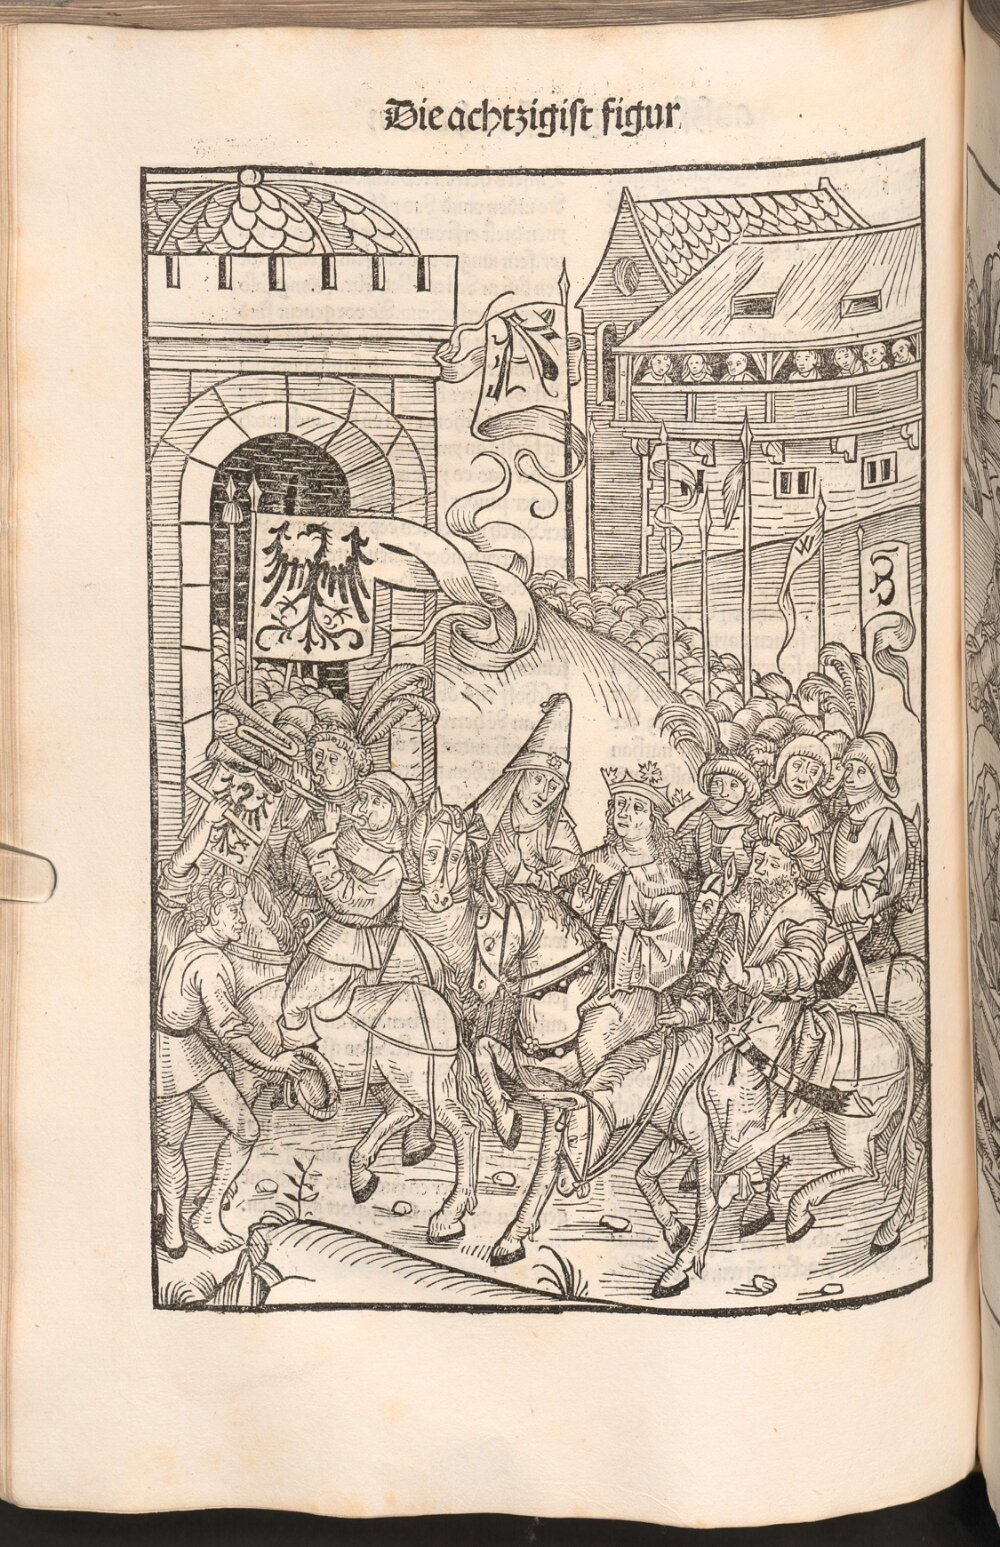 Die achtzigist figur
W